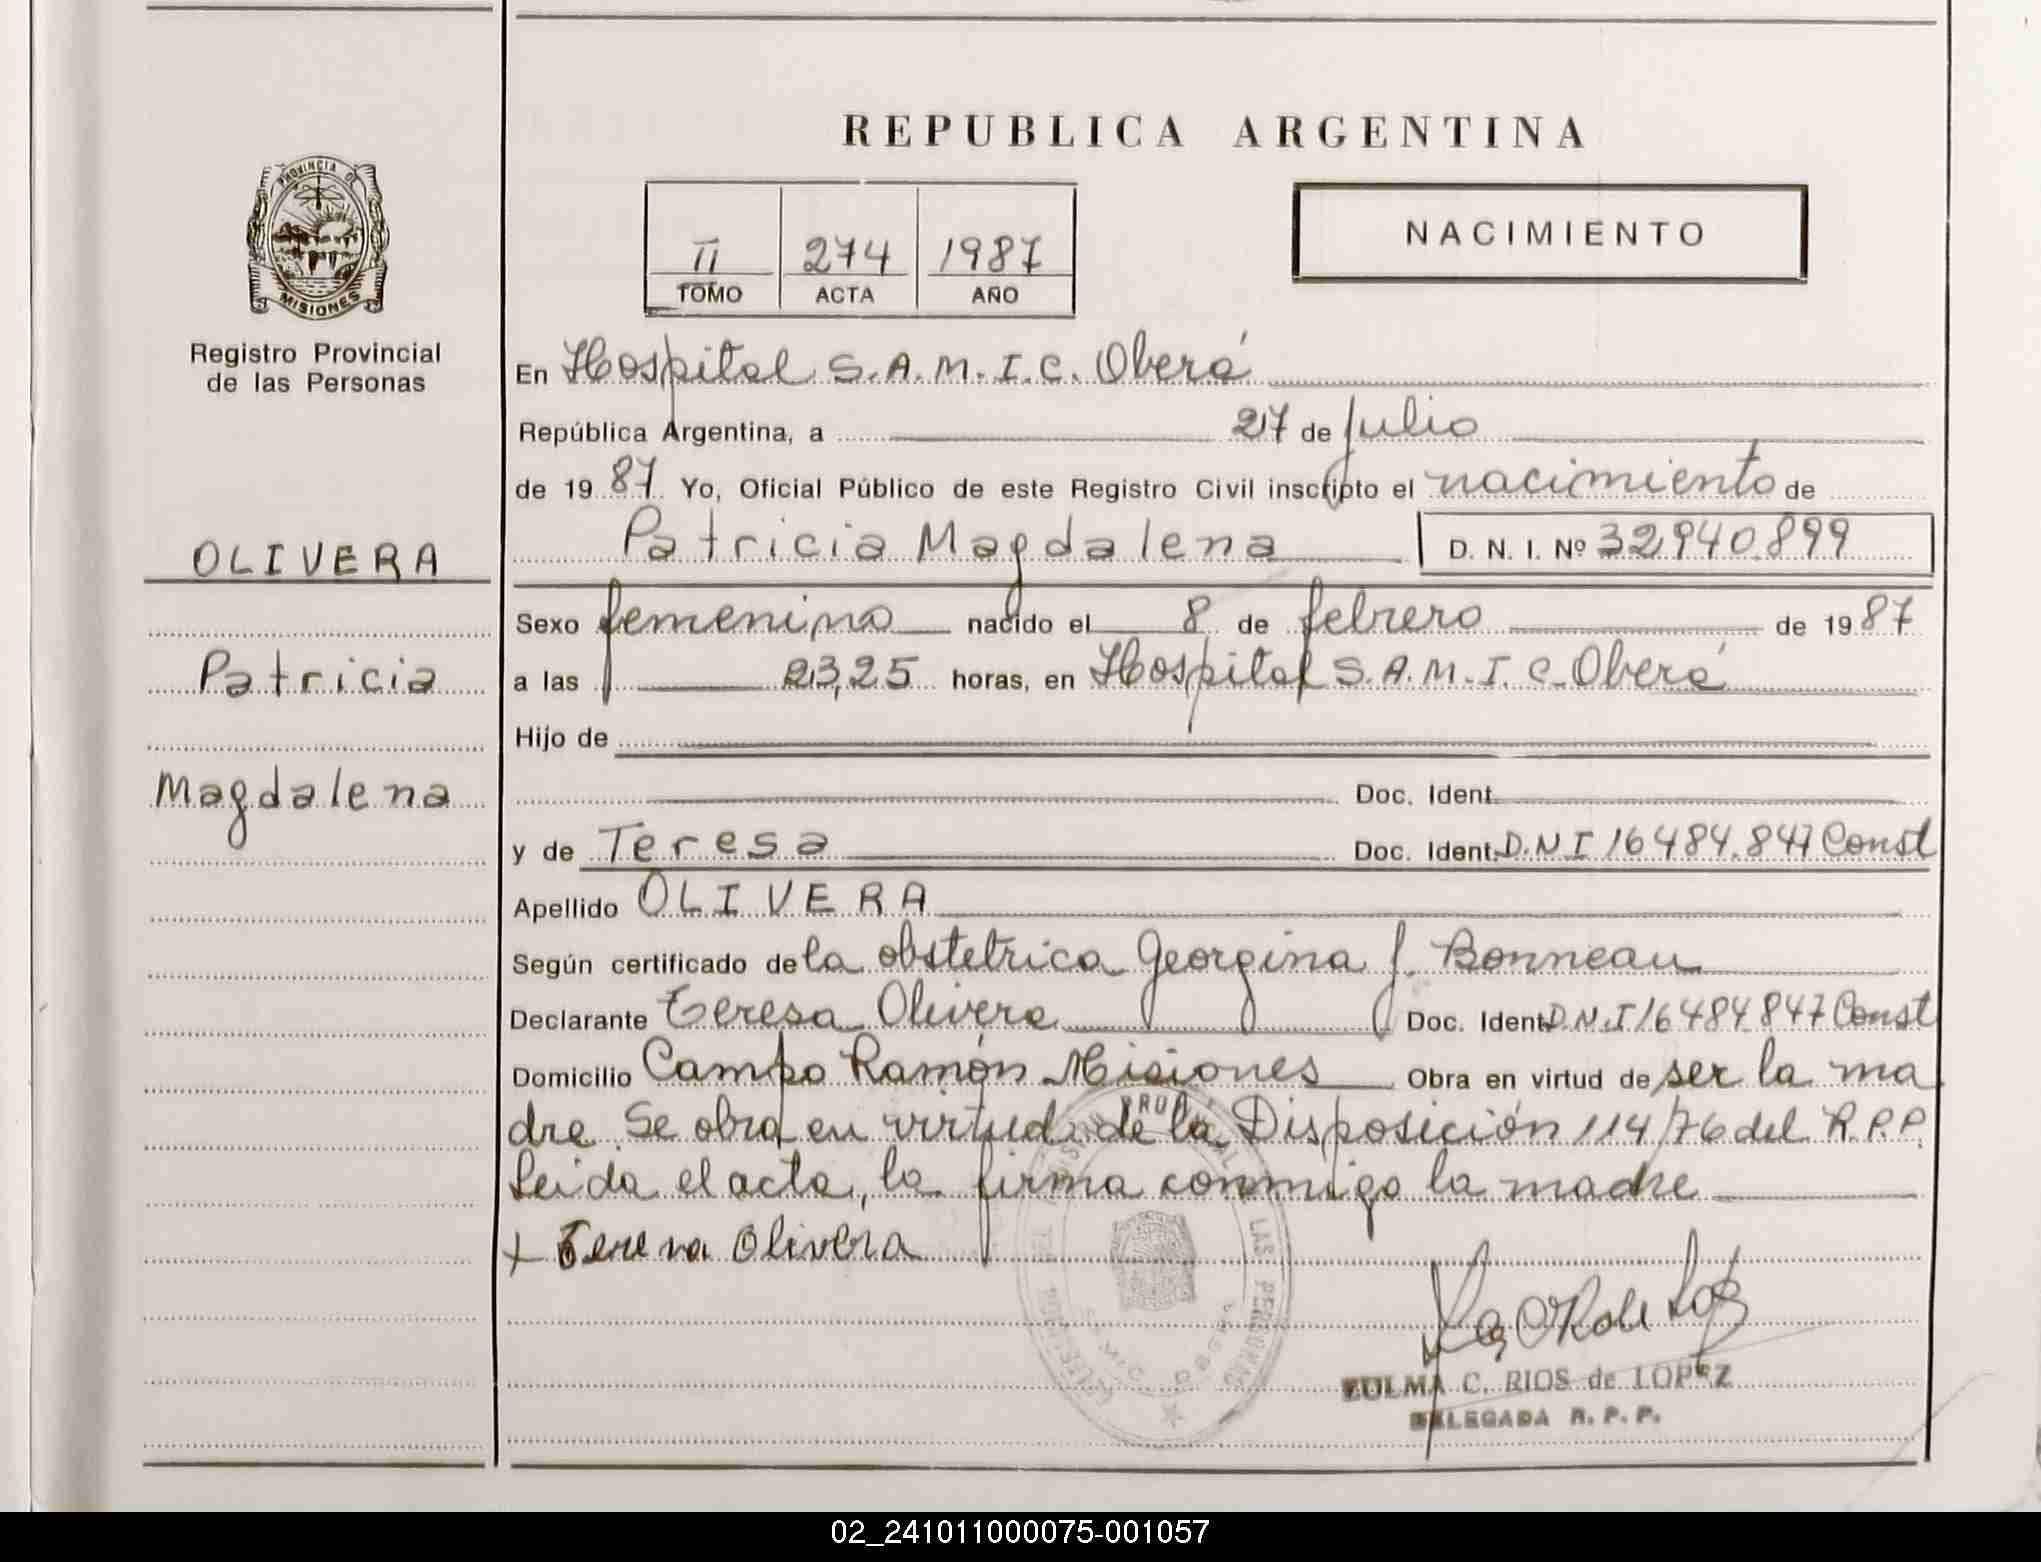 REPUBLICA ARGENTINA
PROVINCIA DE
MISIONES
Registro Provincial
de las Personas
II 274 1987
TOMO ACTA AÑO
NACIMIENTO
OLIVERA
Patricia
Magdalena
En Hospital S.A.M.I.C. Oberá
República Argentina, a 27 de Julio
de 1987 Yo, Oficial Público de este Registro Civil inscripto el nacimiento de
Patricia Magdalena D. N. I. Nº 32.940.899
Sexo femenino nacido el 8 de febrero de 1987
a las 23,25 horas, en Hospital S.A.M.I.C. Oberá
Hijo de
Doc. Ident.
y de Teresa Doc. Ident. D.N.I 16484.847 Const
Apellido OLIVERA
Según certificado de la obstetrica Georgina J. Bonneau
Declarante Teresa Olivera Doc. Ident. D.N.I 16484847 Const
Domicilio Campo Ramón Misiones Obra en virtud de ser la ma
dre Se obra en virtud de la Disposición 114/76 del R.P.P.
Leida el acta, la firma conmigo la madre
+ Teresa Olivera
ZULMA C. RIOS de LOPEZ
DELEGADA R. P. P.
02_241011000075-001057